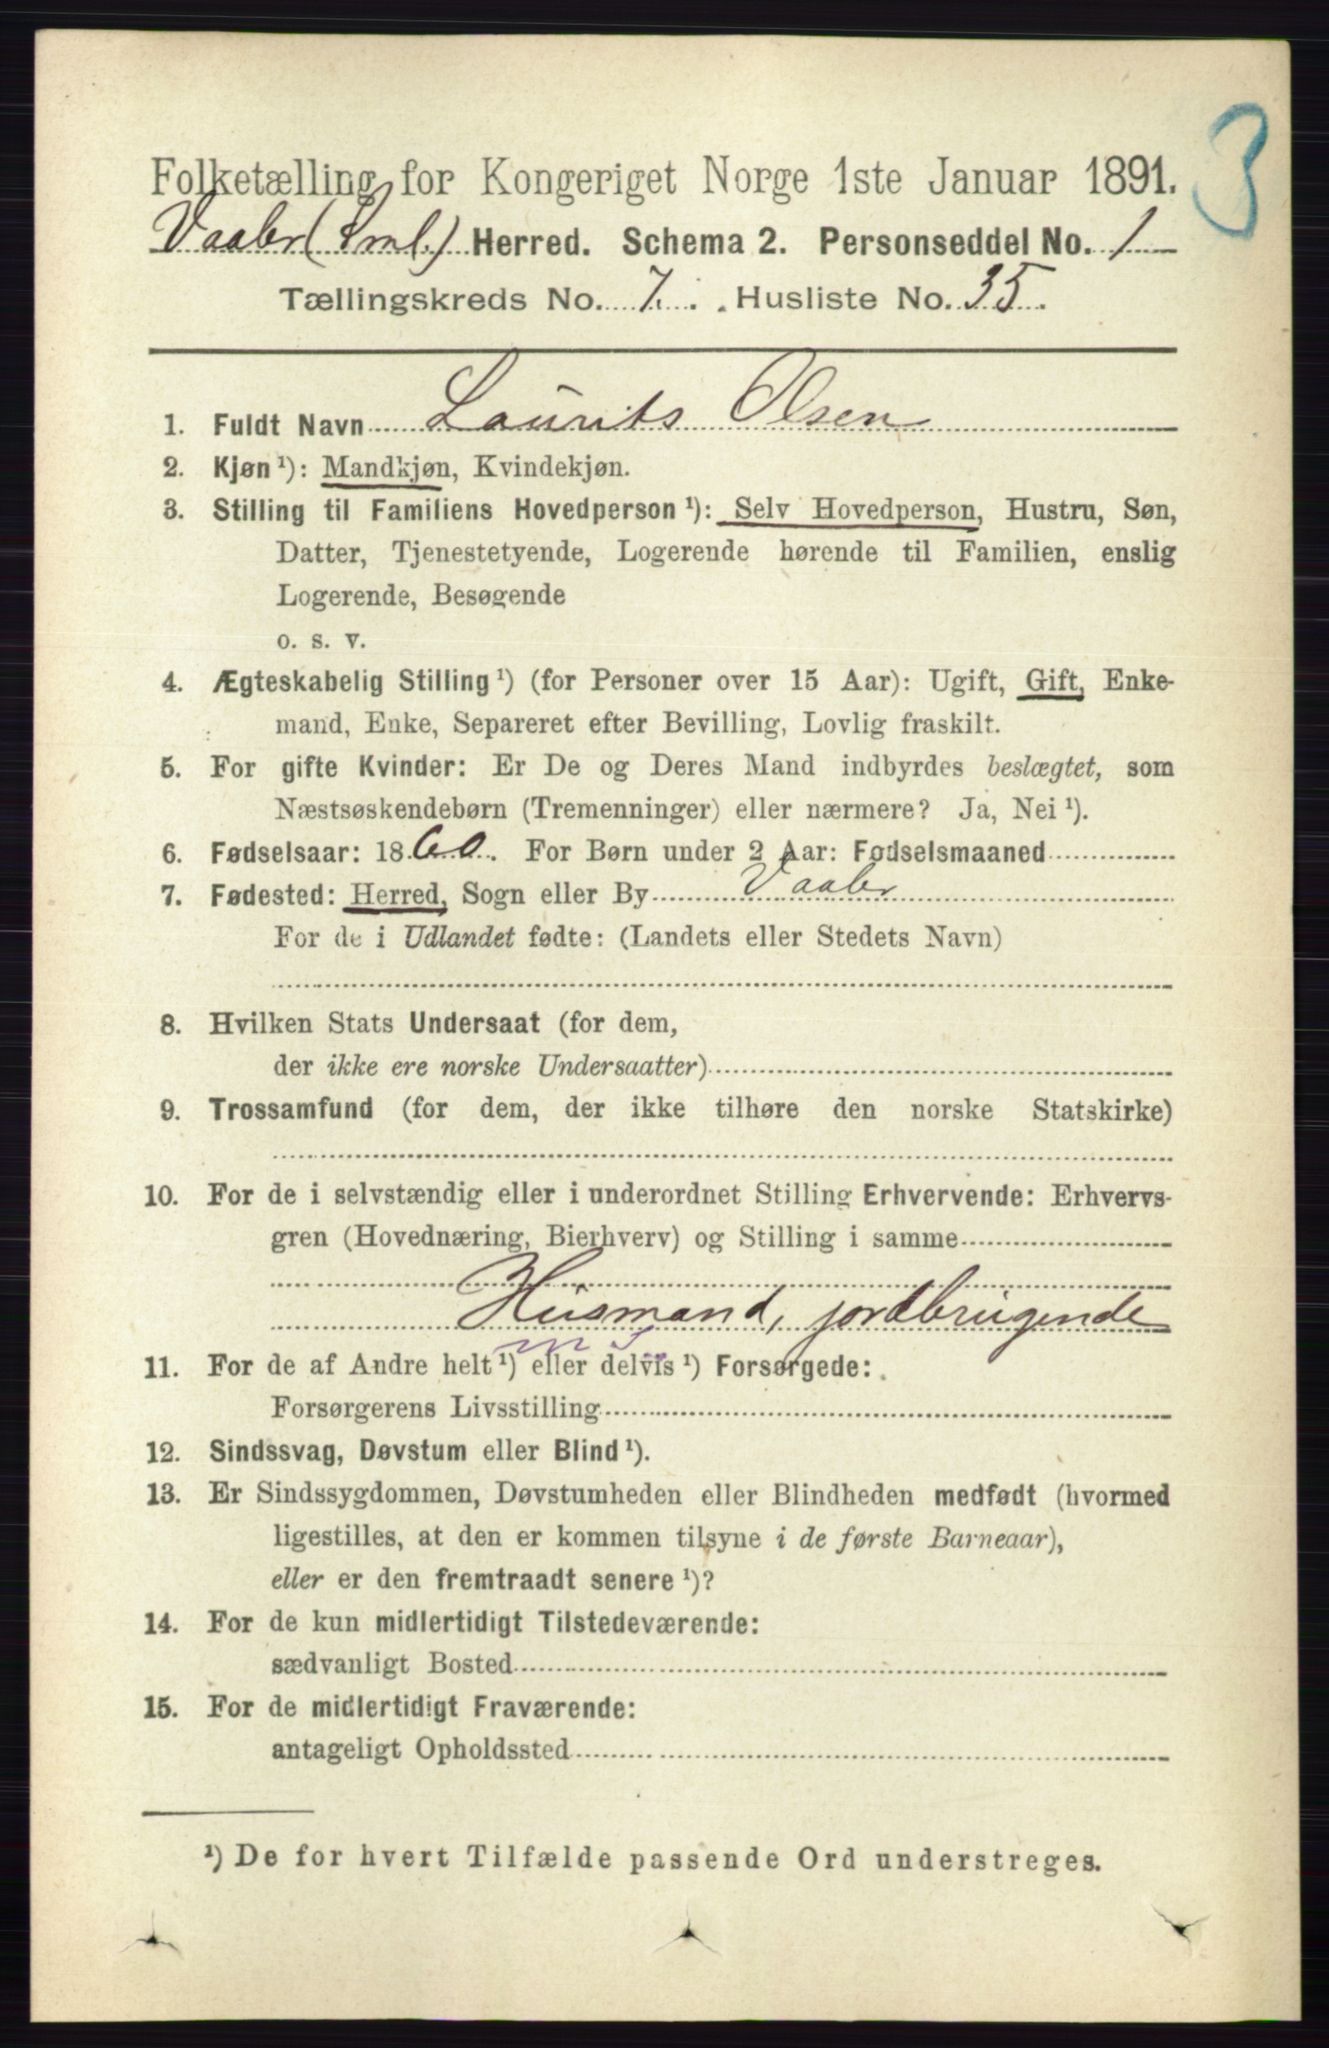 3
Folketælling for Kongeriget Norge 1ste Januar 1891.
Vaaler (Sml.) Herred. Schema 2. Personseddel No. 1
Tællingskreds No. 7. Husliste No. 35.
1. Fuldt Navn Laurits Olsen
2. Kjøn ¹): Mandkjøn, Kvindekjøn.
3. Stilling til Familiens Hovedperson ¹): Selv Hovedperson, Hustru, Søn,
Datter, Tjenestetyende, Logerende hørende til Familien, enslig
Logerende, Besøgende
o. s. v.
4. Ægteskabelig Stilling ¹) (for Personer over 15 Aar): Ugift, Gift, Enke-
mand, Enke, Separeret efter Bevilling, Lovlig fraskilt.
5. For gifte Kvinder: Er De og Deres Mand indbyrdes beslægtet, som
Næstsøskendebørn (Tremenninger) eller nærmere? Ja, Nei ¹).
6. Fødselsaar: 1860. For Børn under 2 Aar: Fødselsmaaned
7. Fødested: Herred, Sogn eller By Vaaler
For de i Udlandet fødte: (Landets eller Stedets Navn)
8. Hvilken Stats Undersaat (for dem,
der ikke ere norske Undersaatter)
9. Trossamfund (for dem, der ikke tilhøre den norske Statskirke)
10. For de i selvstændig eller i underordnet Stilling Erhvervende: Erhvervs-
gren (Hovednæring, Bierhverv) og Stilling i samme
Husmand, jordbrugende
11. For de af Andre helt ¹) eller delvis ¹) Forsørgede:
Forsørgerens Livsstilling
12. Sindssvag, Døvstum eller Blind ¹).
13. Er Sindssygdommen, Døvstumheden eller Blindheden medfødt (hvormed
ligestilles, at den er kommen tilsyne i de første Barneaar),
eller er den fremtraadt senere ¹)?
14. For de kun midlertidigt Tilstedeværende:
sædvanligt Bosted
15. For de midlertidigt Fraværende:
antageligt Opholdssted
¹) De for hvert Tilfælde passende Ord understreges.